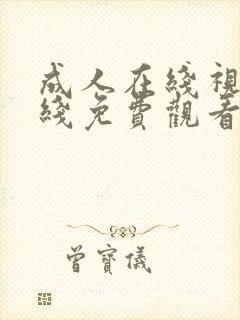 成人在綫視
綫免費觀看
曾寶儀